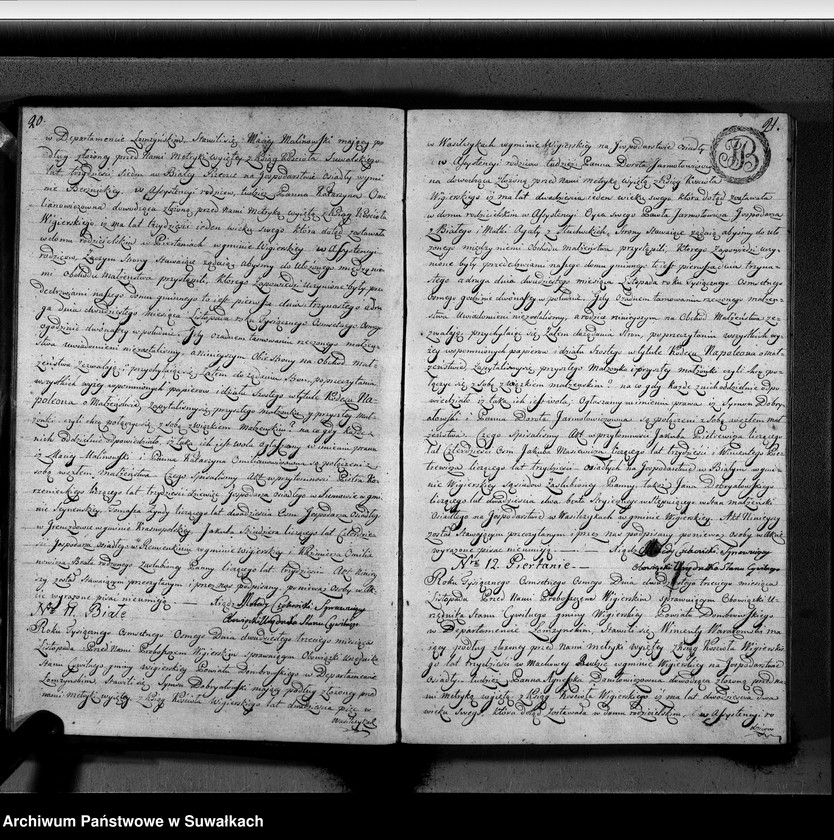 20.
w Departamencie Łomżyńskim, Stawił się Maciey Malinowski mający po
dług złożoney przed Nami Metryki wyiętey z Ksiąg Kościoła Suwalskiego
lat trzydzieści siedm w na Gospodarstwie Osiadły wgmi
nie w Assystencyi rodziców, tudzież Panna Katarzyna Omi
lianowiczowna dowodząca złożoną przed Nami Metryką wyiętą z Ksiąg Kościoła
Wigierskiego iż ma lat trzydzieści ieden wieku swego która dotąd zostawała
w domu rodzicielskim w Piertaniach wgminie Wigierskiey w Assystencyi
rodziców, Strony Stawaiące żądaią abyśmy do ułożonego między nie
mi obchodu Małżeństwa przystąpili, którego Zapowiedzi Uczynione były prze
dedrzwiami naszego domu gminnego to iest pierwsza dnia trzynastego a dru
ga dnia dwudziestego miesiąca Listopada roku Tysiącznego Osmsetnego Osmego
ogodzinie dwunastey w południe. Gdy o żadnem tamowaniu rzeczonego małżeń
stwa uwiadomieni niezostaliśmy, a ninieyszym Obie Strony na Obchod Mał
żeństwa zezwalaią przychylaiąc się zatem do żądania Stron, po przeczytaniu
wszystkich wyżey wspomnionych papierow i działu Szostego w tytule Kodexu Na
poleona o Małżeństwie, zapytaliśmy się przyszłego Małżonka y przyszłey mał
żonki czyli chcą połączyć się z sobą związkiem Małżeńskim? na co gdy każde z
nich oddzielnie odpowiedziało, iż taka ich iest wola Ogłaszamy w imieniu prawa
iż Maciey Malinowski i Panna Katarzyna Omilianowiczowna są połączeni z
sobą węzłem małżeństwa Czego spisaliśmy Akt w przytomności Piotra Ko
rzenieckiego liczącego lat trzydzieści dziewięć Gospodarza osiadłego w w gmi
nie Seyneńskiey, Tomasza liczącego lat dwadzieścia Gospodarza Osiadłego
w wgminie Krasnopolskiey, Jakuba liczącego lat
Gospodarza osiadłego w wgminie Wigierskiey i Kazimierza Omilia
nowicza Brata rodzonego zaślubioney Panny liczącego lat trzydzieści Akt ninieyszy
został stawaiącym przeczytanym i przez nas podpisany, ponieważ osoby w Ak
cie wyrażone pisać nieumieią. — Xiądz Sprawuiący
Obowiązki Urzędnika Stanu Cywilnego
Nro 11 Białe
Roku Tysiącznego Osmsetnego Osmego Dnia dwudziestego trzeciego miesiąca
Listopada Przed Nami Proboszczem Wigierskim sprawuiącym Obowiązki Urzędnika
Stanu Cywilnego gminy Wigierskiey Powiatu Dombrowskiego w Departamencie
Łomżyńskim, Stawił się Symon Dobrydłowski mający podług złożoney przed
nami Metryki wyiętey z Ksiąg Kościoła Wigierskiego lat
Wasilczykach
21.
w Wasilczykach wgminie Wigierskiey na Gospodarstwie Osiadły
w Assystencyi rodziców tudzież Panna Dorota Jarmołowiczowna
na dowodząca złożoną przed nami metryką wyiętą z Ksiąg Kościoła
Wigierskiego iż ma lat dwadzieścia ieden wieku swego która dotąd zostawała
w domu rodzicielskim w Assystencyi Oyca swego Pawła Jarmołowicza Gospodarza
z Białego i Matki Agaty z Strony Stawaiące żądaią abyśmy do uło
żonego między niemi Obchodu Małżeństwa przystąpili, Którego Zapowiedzi uczy
nione były przeddrzwiami naszego domu gminnego to iest pierwsza dnia trzyna
stego a druga dnia dwudziestego miesiąca Listopada roku Tysiącznego Osmsetnego
Osmego godzinie dwunastey w południe. Gdy Ożadnem tamowaniu rzeczonego małżeń
stwa Uwiadomieni niezostaliśmy, a rodzice ninieyszym na Obchod Małżeństwa ze
zwalaią, przychylaiąc się zatem do żądania Stron, po przeczytaniu wszystkich wy
żey wspomnionych papierow i działu Szostego w tytule Kodexu Napoleona o mał
żeństwie Zapytaliśmy się przyszłego Małżonka i przyszłey małżonki czyli chcą po
łączyć się z sobą związkiem małżeńskim? na co gdy każde z nich oddzielnie odpo
wiedziało iż taka ich iest wola, Ogłaszamy w imieniu prawa iż Symon Dobry
dłowski i Panna Dorota Jarmołowiczowna są połączeni z sobą węzłem mał
żeństwa. Czego Spisaliśmy Akt w przytomności Jakuba liczącego
lat czterdzieści Osm Jakuba liczącego lat trzydzieści i Wincentego
liczącego lat trzydzieści osiadłych na Gospodarstwie w Białym wgmi
nie Wigierskiey Sąsiadow zaślubioney Panny, także Jana Dobrydłowskiego
liczącego lat dwadzieścia dwa brata wstępuiącego w stan małżeński
Osiadłego na Gospodarstwie w Wasilczykach wgminie Wigierskiey. Akt Ninieyszy
został Stawaiącym przeczytanym i przez nas podpisany ponieważ osoby w Akcie
wyrażone pisać nieumieią. — Xiądz Sprawuiący
Obowiązki Urzędnika Stanu Cywilnego
Nro 12. Piertanie.
Roku Tysiącznego Osmsetnego Osmego Dnia dwudziestego trzeciego miesiąca
Listopada Przed Nami Proboszczem Wigierskim sprawuiącym Obowiązki U
rzędnika Stanu Cywilnego gminy Wigierskiey Powiatu Dombrowskiego
w Departamencie Łomżynskim, Stawił się Wincenty ma
iący podług złożoney przed Nami Metryki wyiętey z Ksiąg Kościoła Wigierskie
go lat trzydzieści w wgminie Wigierskiey na Gospodarstwie
Osiadły, tudzież Panna Agnieszka dowodząca złożoną przed na
mi Metryką wyiętą z Ksiąg Kościoła Wigierskiego iż ma lat dwadzieścia dwa
wieku swego, która dotąd zostawała w domu rodzicielskim, w Assystencyi ro
dziców
Archiwum Państwowe w Suwałkach